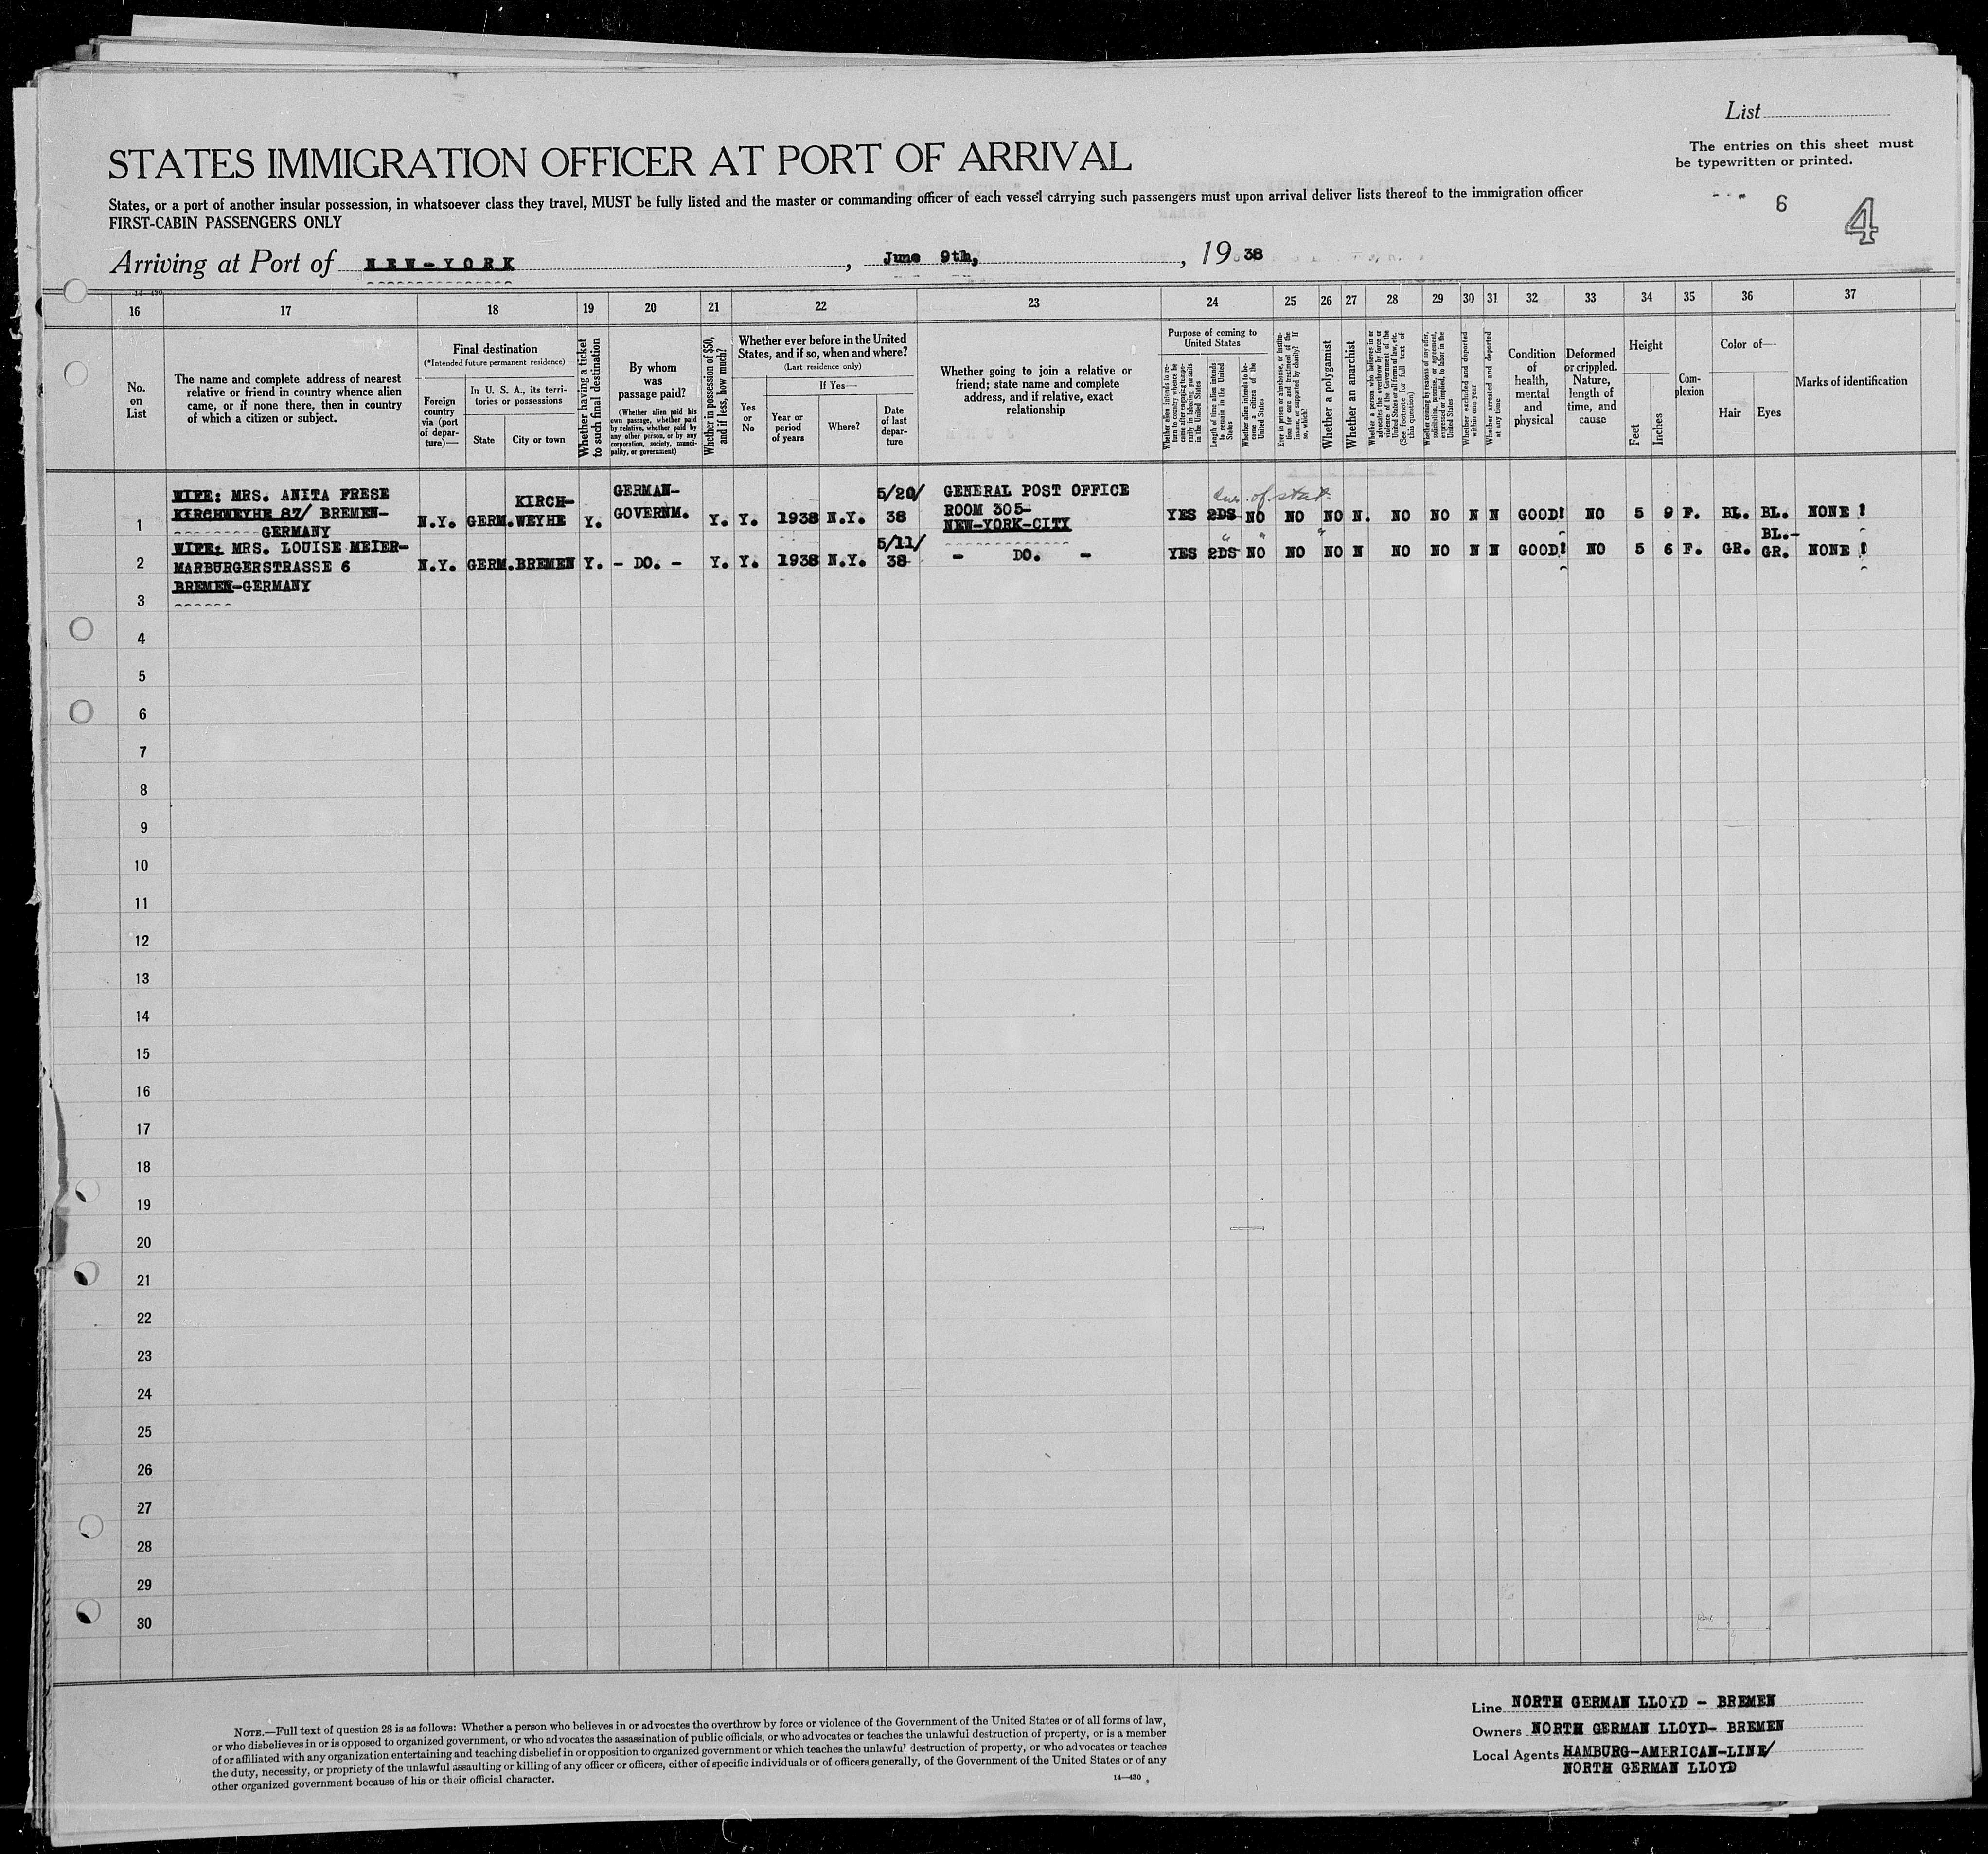 List
The entries on this sheet must
be typewritten or printed.
6
4
STATES IMMIGRATION OFFICER AT PORT OF ARRIVAL
States, or a port of another insular possession, in whatsoever class they travel, MUST be fully listed and the master or commanding officer of each vessel carrying such passengers must upon arrival deliver lists thereof to the immigration officer
FIRST-CABIN PASSENGERS ONLY
Arriving at Port of NEW-YORK, June 9th, 1938
16 17 18 19 20 21 22 23 24 25 26 27 28 29 30 31 32 33 34 35 36 37
No.
on
List
The name and complete address of nearest
relative or friend in country whence alien
came, or if none there, then in country
of which a citizen or subject.
Final destination
(*Intended future permanent residence)
Foreign
country
via (port
of depar-
ture)—
In U. S. A., its terri-
tories or possessions
State
City or town
Whether having a ticket
to such final destination
By whom
was
passage paid?
(Whether alien paid his
own passage, whether paid
by relative, whether paid by
any other person, or by any
corporation, society, munci-
pality, or government)
Whether in possession of $50,
and if less, how much?
Whether ever before in the United
States, and if so, when and where?
(Last residence only)
Yes
or
No
If Yes—
Year or
period
of years
Where?
Date
of last
depar-
ture
Whether going to join a relative or
friend; state name and complete
address, and if relative, exact
relationship
Purpose of coming to
United States
Whether alien intends to re-
turn to country whence he
came after engaging tempo-
rarily in laboring pursuits
in the United States
Length of time alien intends
to remain in the United
States
Whether alien intends to be-
come a citizen of the
United States
Ever in prison or almshouse, or institu-
tion for care and treatment of the
insane, or supported by charity? If
so, which?
Whether a polygamist
Whether an anarchist
Whether a person who believes in or
advocates the overthrow by force or
violence of the Government of the
United States or all forms of law, etc.
(See footnote for full text of
this question)
Whether coming by reasons of any offer,
solicitation, promise, or agreement,
expressed or implied, to labor in the
United States
Whether excluded and deported
within one year
Whether arrested and deported
at any time
Condition
of
health,
mental
and
physical
Deformed
or crippled.
Nature,
length of
time, and
cause
Height
Feet
Inches
Com-
plexion
Color of—
Hair
Eyes
Marks of identification
WIFE: MRS. ANITA FRESE
KIRCHWEYHE 87/ BREMEN-
GERMANY
1 N.Y. GERM. KIRCH-
WEYHE Y. GERMAN-
GOVERNM. Y. Y. 1938 N.Y. 5/20/
38 GENERAL POST OFFICE
ROOM 305-
NEW-YORK-CITY
YES 2DS NO NO NO N. NO NO N N GOOD! NO 5 9 F. BL. BL. NONE !
WIFE: MRS. LOUISE MEIER-
MARBURGERSTRASSE 6
BREMEN-GERMANY
2 N.Y. GERM. BREMEN Y. - DO. - Y. Y. 1938 N.Y. 5/11/
38 - DO. -
YES 2DS NO NO NO N NO NO N N GOOD! NO 5 6 F. GR. BL.-
GR. NONE !
3
4
5
6
7
8
9
10
11
12
13
14
15
16
17
18
19
20
21
22
23
24
25
26
27
28
29
30
NOTE.—Full text of question 28 is as follows: Whether a person who believes in or advocates the overthrow by force or violence of the Government of the United States or of all forms of law,
or who disbelieves in or is opposed to organized government, or who advocates the assassination of public officials, or who advocates or teaches the unlawful destruction of property, or is a member
of or affiliated with any organization entertaining and teaching disbelief in or opposition to organized government or which teaches the unlawful destruction of property, or who advocates or teaches
the duty, necessity, or propriety of the unlawful assaulting or killing of any officer or officers, either of specific individuals or of officers generally, of the Government of the United States or of any
other organized government because of his or their official character.
14—430
Line NORTH GERMAN LLOYD - BREMEN
Owners NORTH GERMAN LLOYD- BREMEN
Local Agents HAMBURG-AMERICAN-LINE/
NORTH GERMAN LLOYD